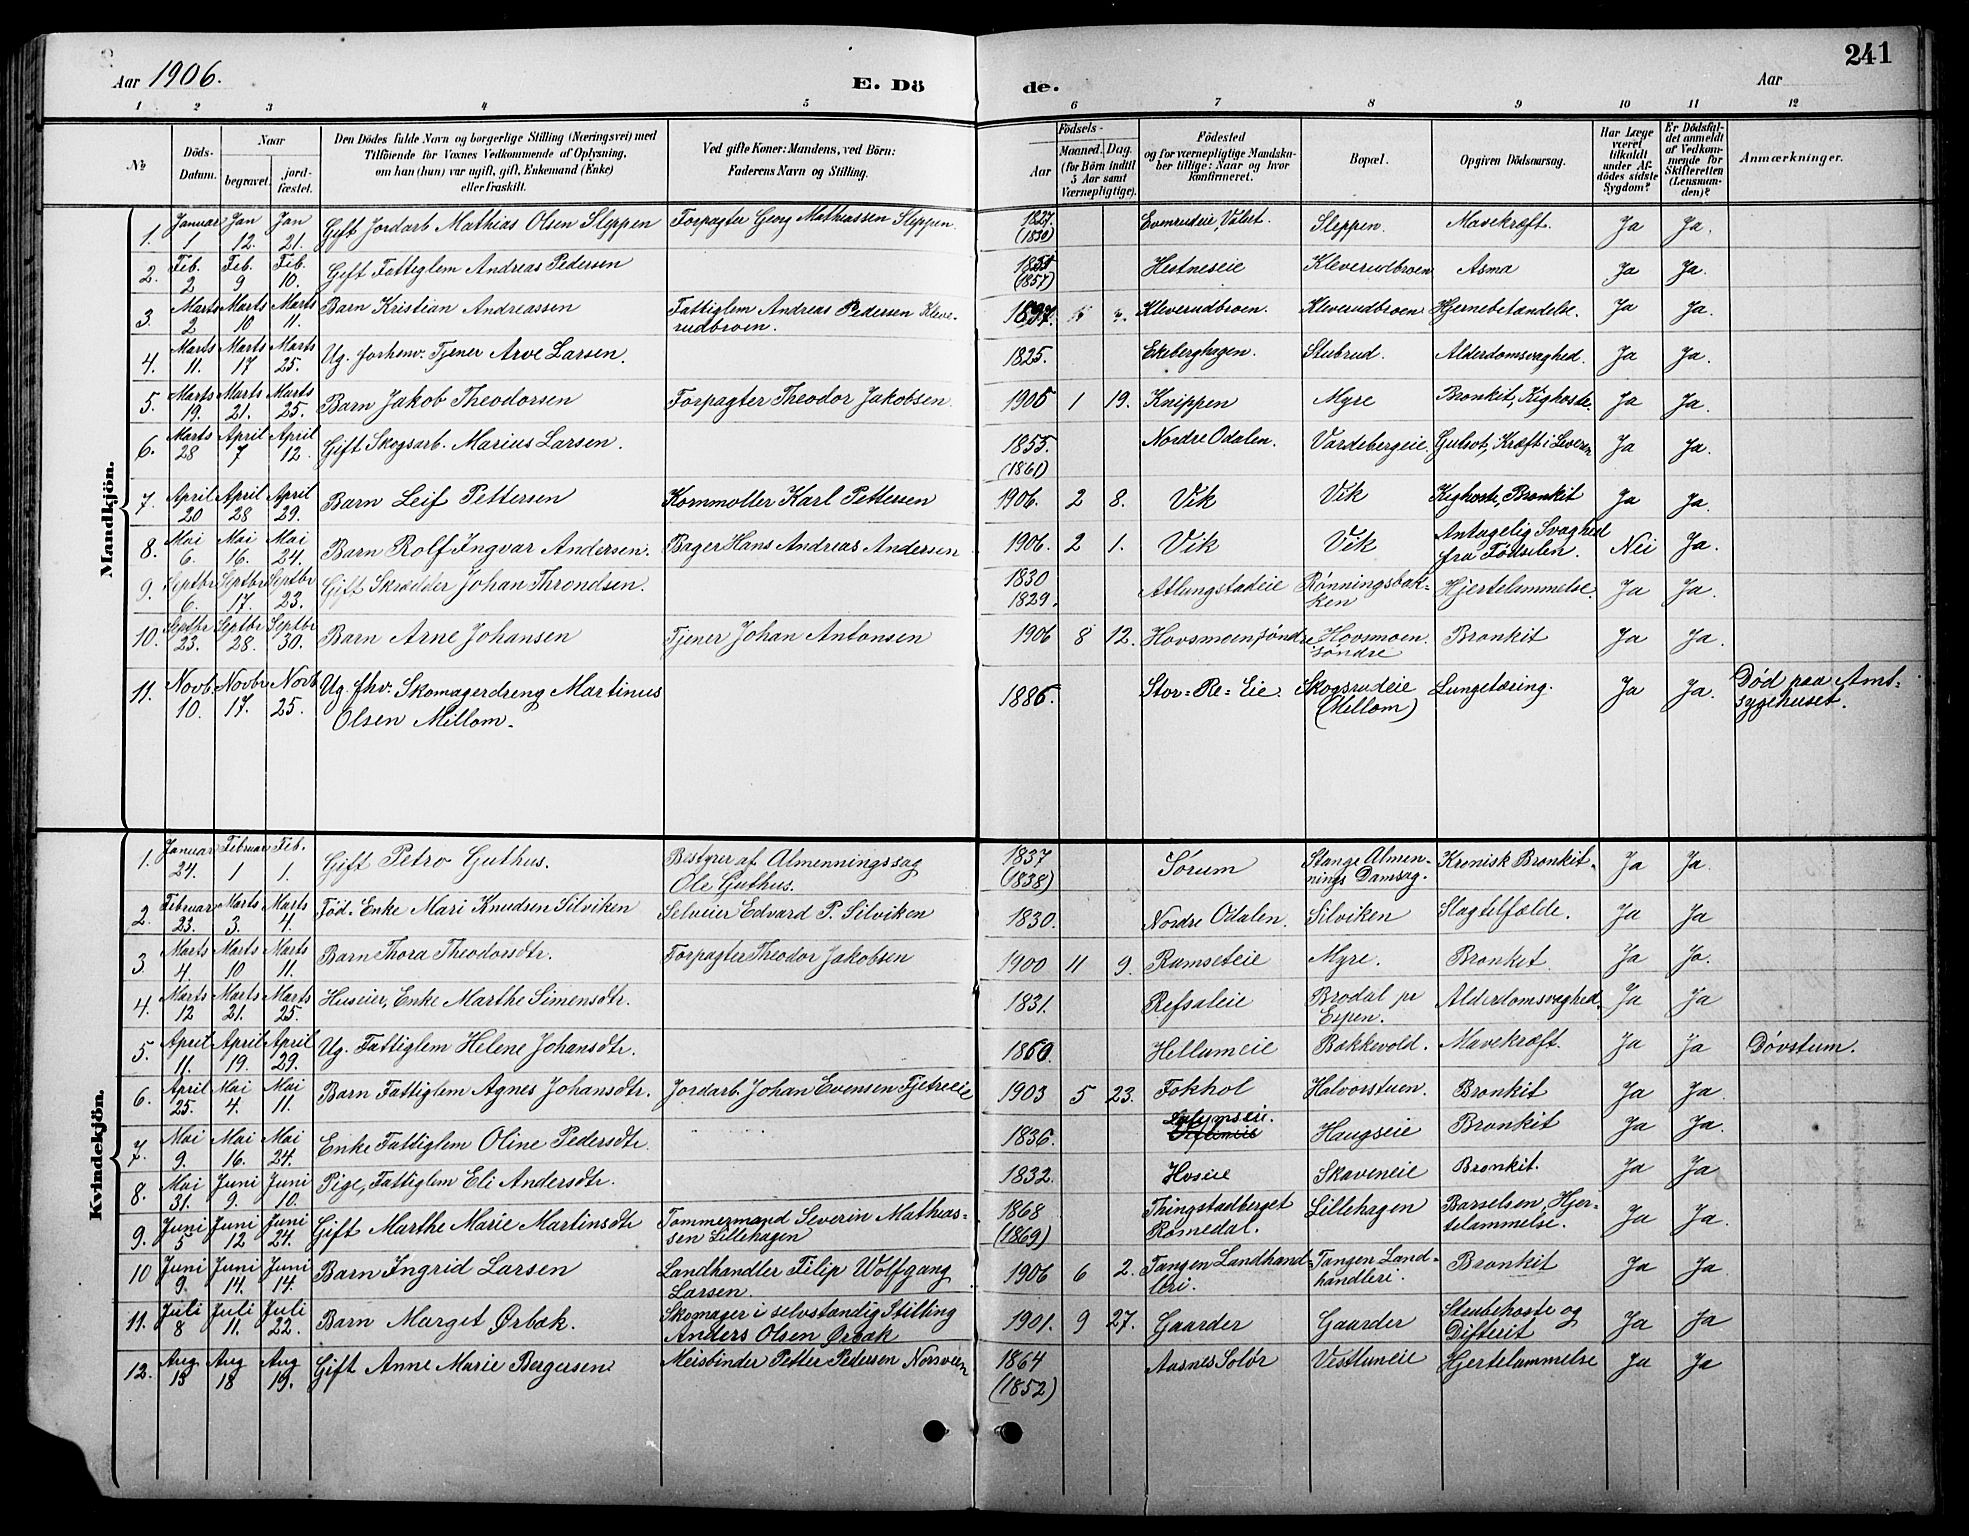 241
Aar 1906. E. Dö de. Aar
1 2 3 4 5 6 7 8 9 10 11 12
№
Döds-Datum.
Naar
begravet.
jord-fæstet.
Den Dödes fulde Navn og borgerlige Stilling (Næringsvei) med
Tilföiende for Voxnes Vedkommende af Oplysning,
om han (hun) var ugift, gift, Enkemand (Enke)
eller fraskilt.
Ved gifte Koner: Mandens, ved Börn:
Faderens Navn og Stilling.
Födsels-
Aar
Maaned. Dag.
(for Börn indtil
5 Aar samt
Værnepligtige).
Födested
og for værnepligtige Mandska-
ber tillige: Naar og hvor
konfirmeret.
Bopæl.
Opgiven Dödsaarsag.
Har Læge
været
tilkaldt
under Af-
dödes sidste
Sygdom?
Er Dödsfal-
det anmeldt
af Vedkom-
mende for
Skifteretten
(Lensman-
den)?
Anmærkninger.
Mandkjön.
1. Januar 1 Jan 12. Jan 21. Gift Jordarb Mathias Olsen Sleppen Forpagter Georg Mathiassen Sleppen. 1827. (1830) Evenrudeie, Valset. Sleppen. Mavekræft. Ja Ja.
2. Feb. 2 Feb. 9 Feb. 10. Gift Fattiglem Andreas Pedersen (1857) Hestneseie Kleverudbroen Asma Ja Ja.
3. Marts 2 Marts 10 Marts 11. Barn Kristian Andreassen Fattiglem Andreas Pedersen Kleve-
rudbroen. 1897. Kleverudbroen. Kleverudbroen Hjernebetændelse. Ja Ja.
4. Marts 11. Marts 17 Marts 25. Ug. forhenv. Tjener Arve Larsen. 1825. Ekeberghagen. Stubrud. Alderdomsvaghed. Ja Ja.
5. Marts 19. Marts 21. Marts 25. Barn Jakob Theodorsen Forpagter Theodor Jakobsen. 1905 1 19. Knippen Myre Bronkit, Kighoste. Ja Ja.
6. Marts 28 April 7 April 12. Gift Skogsarb. Marius Larsen. 1855. (1861) Nordre Odalen. Vardebergeie. Gulsot, Kræft i Leveren Ja Ja.
7. April 20 April 28 April 29. Barn Leif Pettersen Kornmotter Karl Pettersen 1906. 2 8. Vik Vik Kighoste, Bronkit Ja Ja.
8. Mai 6. Mai 16. Mai 24. Barn Rolf Ingvar Andersen. Bager Hans Andreas Andersen 1906. 2 1. Vik Vik Antagelig Svaghed
fra Fødselen. Nei Ja.
9. Septbr 6. Septbr 17. Septbr 23. Gift Skrædder Johan Throndsen. 1830 1829. Atlungstadeie Rønningsbak-
ken Hjertelammelse. Ja Ja.
10. Septbr 23. Septbr 28. Septbr 30. Barn Arne Johansen Tjener Johan Antonsen 1906 8 12. Hovsmoen søndre Hovsmoen
søndre Bronkit Ja Ja.
11. Novb. 10. Novbr 17. Novb 25. Ug. fhv. Skomagerdreng Martinus
Olsen Millom. 1886. Stor=Re=Eie. Skogsrudeie
(Mellom) Lungetæring. Ja Ja. Død paa Amt-
sygehuset.
Kvindekjön.
1. Januar 24. Februar 1 Feb. 1. Gift Petro Guthus. Bestyrer af Almenningssag
Ole Guthus. 1837 (1838) Sørum Stange Almen-
nings Damsag. Kronisk Bronkit. Ja Ja.
2. Februar 23. Marts 3. Marts 4. Fød. Enke Mari Knudsen Silviken Selveier Edvard P. Silviken 1830. Nordre Odalen. Silviken Slagtilfælde. Ja Ja
3. Marts 4. Marts 10 Marts 11. Barn Thora Theodorsdtr. Forpagter Theodor Jakobsen 1900 11 9. Ramseteie Myre. Bronkit. Ja Ja.
4. Marts 12 Marts 21. Marts 25. Huseier, Enke Marthe Simensdtr. 1831. Refsaleie Brodal pr
Espen. Alderdomsvaghed. Ja Ja
5. April 11. April 19. April 29. Ug. Fattiglem Helene Johansdtr. 1860. Hellumeie Bakkevold. Mavekræft. Ja Ja Døvstum.
6. April 25. Mai 4. Mai 11. Barn Fattiglem Agnes Johansdtr. Jordarb. Johan Evensen Tjetreeie 1903 5 23. Fokhol Halvorstuen. Bronkit Ja Ja.
7. Mai 9. Mai 16. Mai 24. Enke Fattiglem Oline Pedersdtr. 1836. Haugseie Bronkit Ja Ja.
8. Mai 31. Juni 9. Juni 10. Pige, Fattiglem Eli Andersdtr. 1832. Hoseie Skaveneie Bronkit. Ja Ja
9. Juni 5 Juni 12 Juni 24. Gift Marthe Marie Martinsdtr Tømmermand Severin Mathias-
sen Lillehagen 1868 (1869) Thingstadberget
Romedal. Lillehagen Barselsen, Hjer-
telammelse. Ja Ja.
10 Juni 9. Juni 14. Juni 14. Barn Ingrid Larsen Landhandler Filip Wolfgang
Larsen. 1906 6 2. Tangen Landhand-
leri. Tangen Land-
handleri. Bronkit Ja Ja
11. Juli 8 Juli 11. Juli 22. Barn Margit Ørbæk. Skomager i selvstændig Stilling
Anders Olsen Ørbæk 1901. 9 27. Gaarder Gaarder Strubehoste og
Difterit Ja Ja
12. Aug 13 Aug 18 Aug 19. Gift Anne Marie Bergersen Meisbinder Petter Pedersen Norsveen 1864 (1852) Aasnes Solør Vestluneie Hjertelammelse Ja Ja